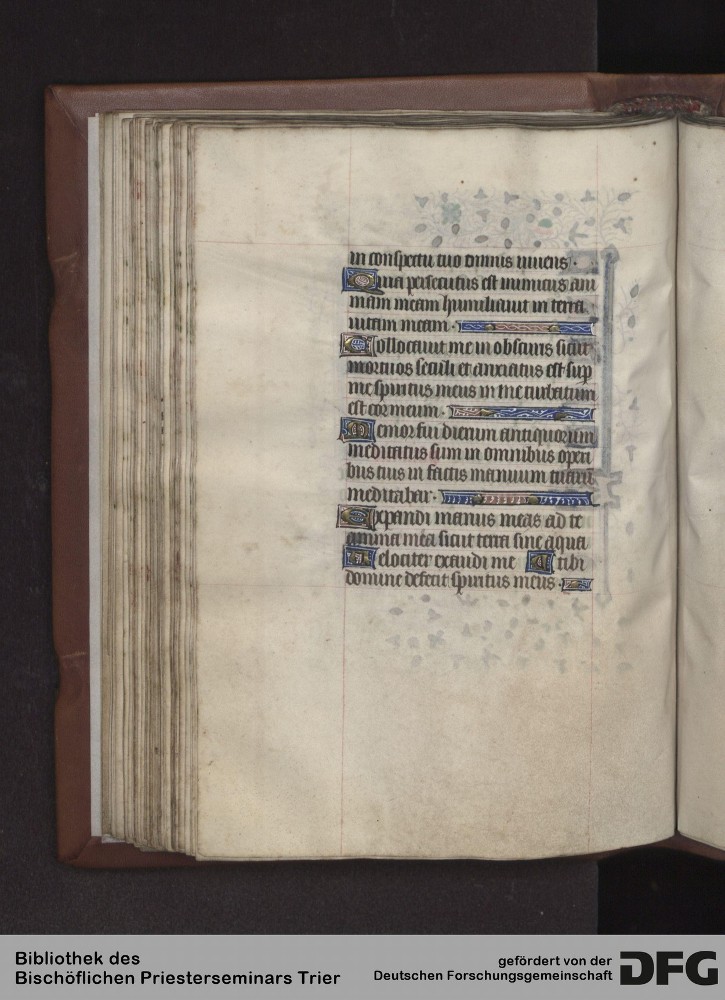 in conspectu tuo omnis uiuens ·
Quia persecutus est inimicus ani
mam meam humiliauit in terra
uitam meam ·
Collocauit me in obscuris sicut
mortuos seculi et anxiatus est sup
me spiritus meus in me turbatum
est cor meum ·
Memor fui dierum antiquorum
meditatus sum in omnibus operi
bus tuis in factis manuum tuarū
meditabar ·
Expandi manus meas ad te
anima mea sicut terra sine aqua
Uelociter exaudi me tibi
domine defecit spiritus meus ·
Bibliothek des
Bischöflichen Priesterseminars Trier
gefördert von der
Deutschen Forschungsgemeinschaft
DFG